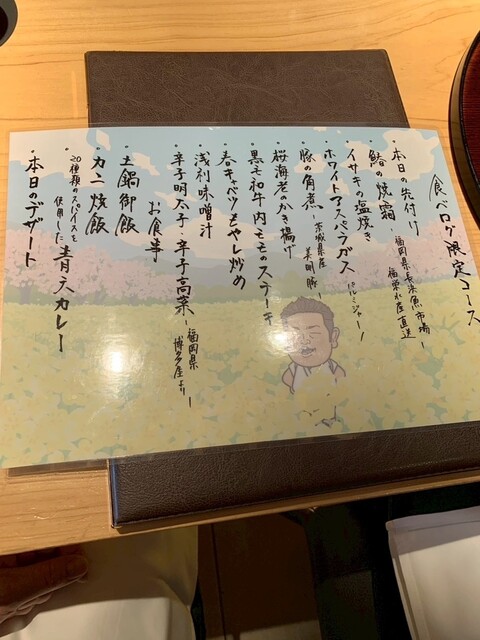 食べログ限定コース
・本日の先付け
-福岡県長浜魚市場-
福栄水産直送
・鰆の焼霜
・イサキの塩焼き
・ホワイトアスパラガス
・豚の角煮
-茨城県産
美明豚-
・桜海老のかき揚げ
・黒毛和牛内ももステーキ
・春キャベツもやし炒め
・浅利味噌汁
・辛子明太子・辛子高菜
-福岡県
博多屋より-
お食事
・土鍋御飯
・カニ焼飯
・20種類のスパイスを
使用した
青天カレー
・本日のデザート